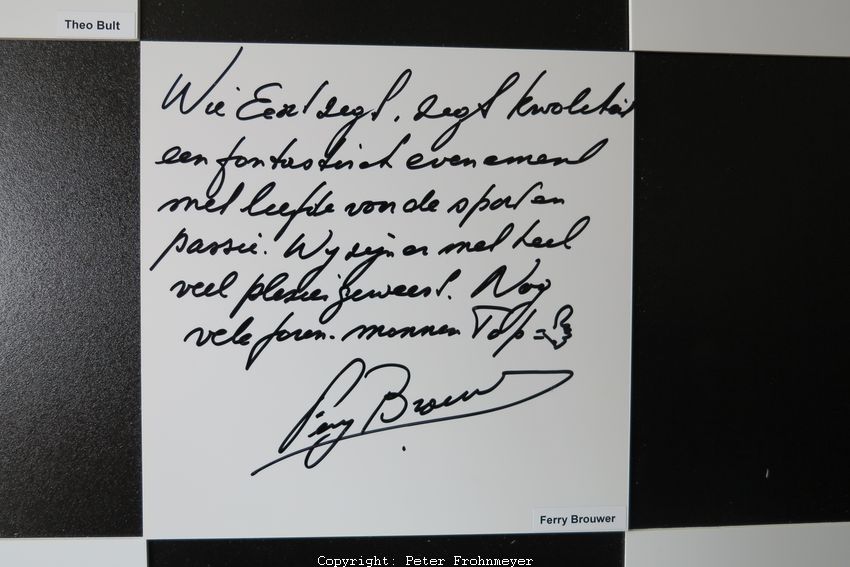 Theo Bult
Wie Eext zegt, zegt kwaliteit
een fantastisch evenement
met liefde van de sport en
passie. Wij zijn er met heel
veel plezier geweest. Nog
vele jaren. mannen Top
Ferry Brouwer
Ferry Brouwer
Copyright: Peter Frohnmeyer